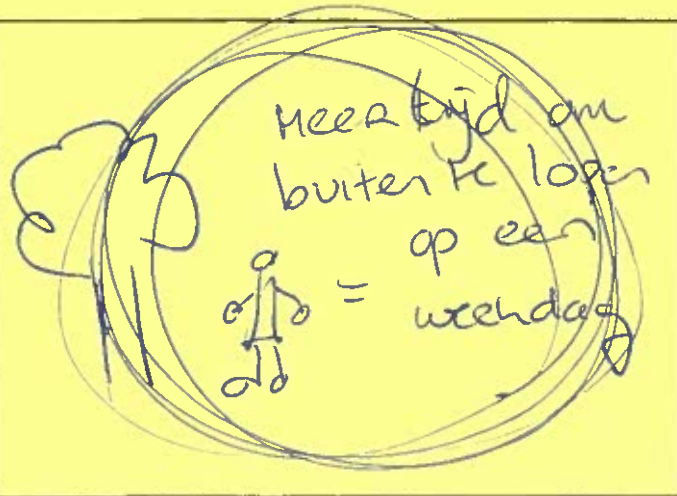 Meer tijd om
buiten te lopen
op een
= weekdag